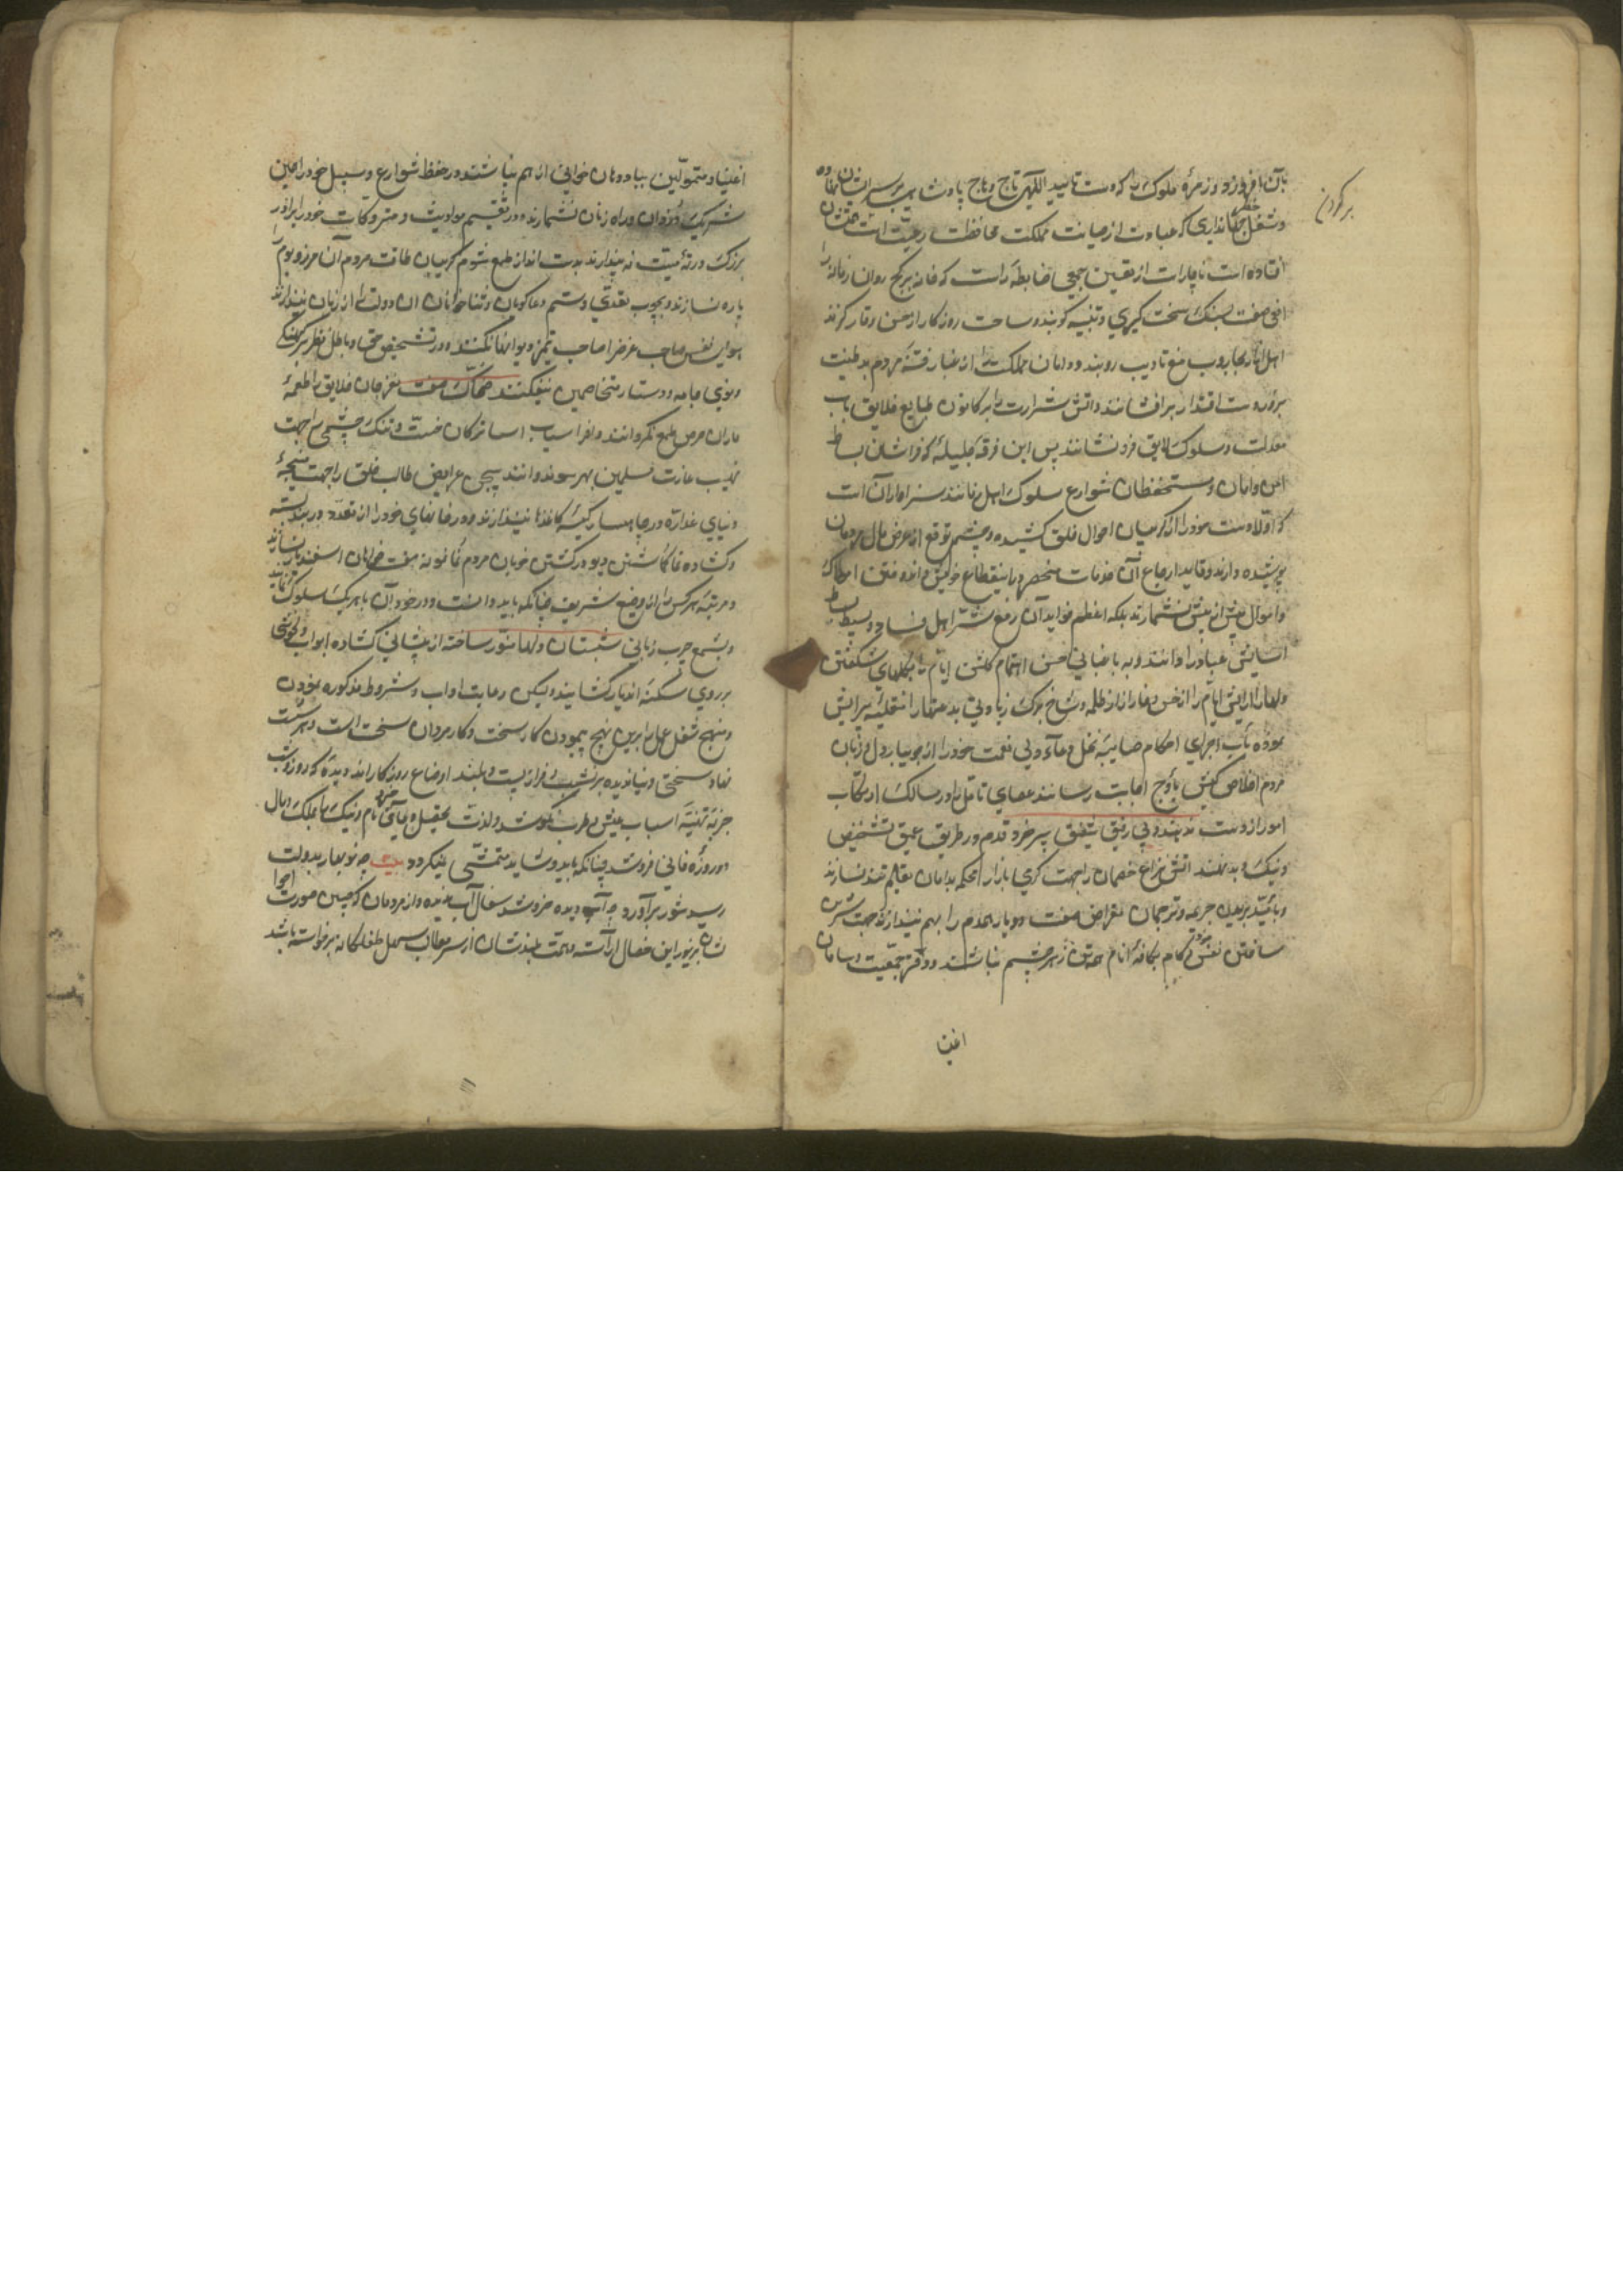 بآن افروزد و زمرهٔ ملوک را که دست تایید الهی تاج وهاج پادشاهی بر سر ایشان نهاده
و شغل خطیر جهانداری که عبارت از صیانت مملکت محافظت رعیت است
افتاده است ناچار است از تعیین جمعی ضابطه راست که خانه بر کج روان زمانه را
افعی صفت بسنگ سخت گیری و تنبیه کوبند و ساحت روزگار از خس و خار گزند
اهل آزار بجاروب منع تادیب روبند و دامان مملکت را از غبار فتنهٔ مردم بد طینت
بزور دست اقتدار برافشانند و آتش شرارت را بر کانون طبایع خلایق بآب
معدلت و سلوک لایق فرو نشانند پس این فرقهٔ جلیله که فراشان بساط
امن و امان و مستحفظان شوارع سلوک اهل زمانند سزاوار آن است
که اولا دست خود را از گریبان احوال خلق کشیده و چشم توقع از عرض مال مردمان
پوشیده دارند و فاید ارجاع آن خدمات منحصر را بانتفاع خویش و اندوختن املاک
و اموال بیش از بیش نشمارند بلکه اعظم فواید آن رفع شر اهل فساد و بسیط بساط
آسایش عباد را دانند و به باغبانی حسن اهتمام گلشن ایام را بگلهای شکفتن
دلها آرایش ایام را از خس و خار آزار ظلمه و شاخ برگ زیادتی بدعتها را تخلیه پیرایش
نموده بآب اجرای احکام صایبه نخل دعاء ولی نعمت خود را از جویبار دل و زبان
مردم اخلاص کیش باوج اجابت رسانند عصای تامل را در مسالک ارتکاب
امور از دست ندهند و بی رفیق شفیق پیر خرد قدم در طریق عمیق تشخیص
و نیک و بد ننهند آتش نزاع خصمان را جهت گرمی بازار محکمه بدامان تعلیم تند نسازند
و بامید بریدن جریمه و ترجمان مقراض صفت دو یار همدم را بهم نیندازند جهت شیرین
ساختن نفس خود کام بکافهٔ انام زهر چشم نباشند و در قهر جمعیت و سامان
بر گردن
اغنیا
اغنیا و متمولین بباد دهان خوانی از هم نپاشند و در حفظ شوارع و سبیل خود را امین
شریک دزدان و راه زنان نشمارند و در تقسیم مواریث و متروکات خود را برادر
بزرک ورثهٔ میت نه پندارند بدست انداز طمع شوم گریبان طاقت مردم آن مرز و بوم را
پاره نسازند و بچوب تعدی و ستم دعاگویان و ثناخوانان آن دولت را از زبان نیندازند
هوای نفس صاحب غرض را صاحب تمیز دیوان خانه نکنند و در تشخیص حق و باطل نظر بر کهنگی
و نوی جامه و دستار متخاصمین نیفکنند ضحاک صفت مغز جان خلایق را طعمهٔ
ماران حرص طمع نگردانند و افراسیاب آسا ترکان خست و تنک چشمی را جهت
نهیب غارت مسلمین بهر سو ندوانند پیچش عرایض طالب خلق را جهت نتیجهٔ
دنیای غداره در چاهسار کیسهٔ کاغذها نیندازند و در خانهای خود را از تعدد دربند بسته
و گشاده ناگاشتن دیو در کشتن خوبان مردم نما نمونهٔ هفت خوان اسفندیار نسازند
و مرتبهٔ هر کس را از وضیع شریف چنانکه باید دانست و در خور آن باهر یک سلوک نمایند
و بشمع چرب زبانی شبستان دلها منور ساخته از پیشانی گشاده ابواب خوشی
بر روی سکنهٔ آن دیار گشایند و لیکن رعایت آداب و شروط مذکوره نمودن
و نهج شغل عمل را برین نهج پیمودن کار سخت و کار مردان سخت است و هر سست
نهاد سختی دنیا ندیده بر نشیب و فراز پست و بلند اوضاع روزگار اند ویدهٔ که روز و شب
جز به تهیهٔ اسباب عیش و طرب نکوشد و لذت تحصیل نیک نامی بملک و مال
دو روزهٔ فانی فروشد چنانکه باید و شاید متمشی نمیگردد بیت چه نو بهار بدولت
رسید شور برآورد چه آب دیده خروشد سفال آب ندیده و از مردمان که چنین صورت احوال
شان بزیور این خصال آراسته و همت بلندشان از سر مطالب سهل طفلگانه برخواسته باشد